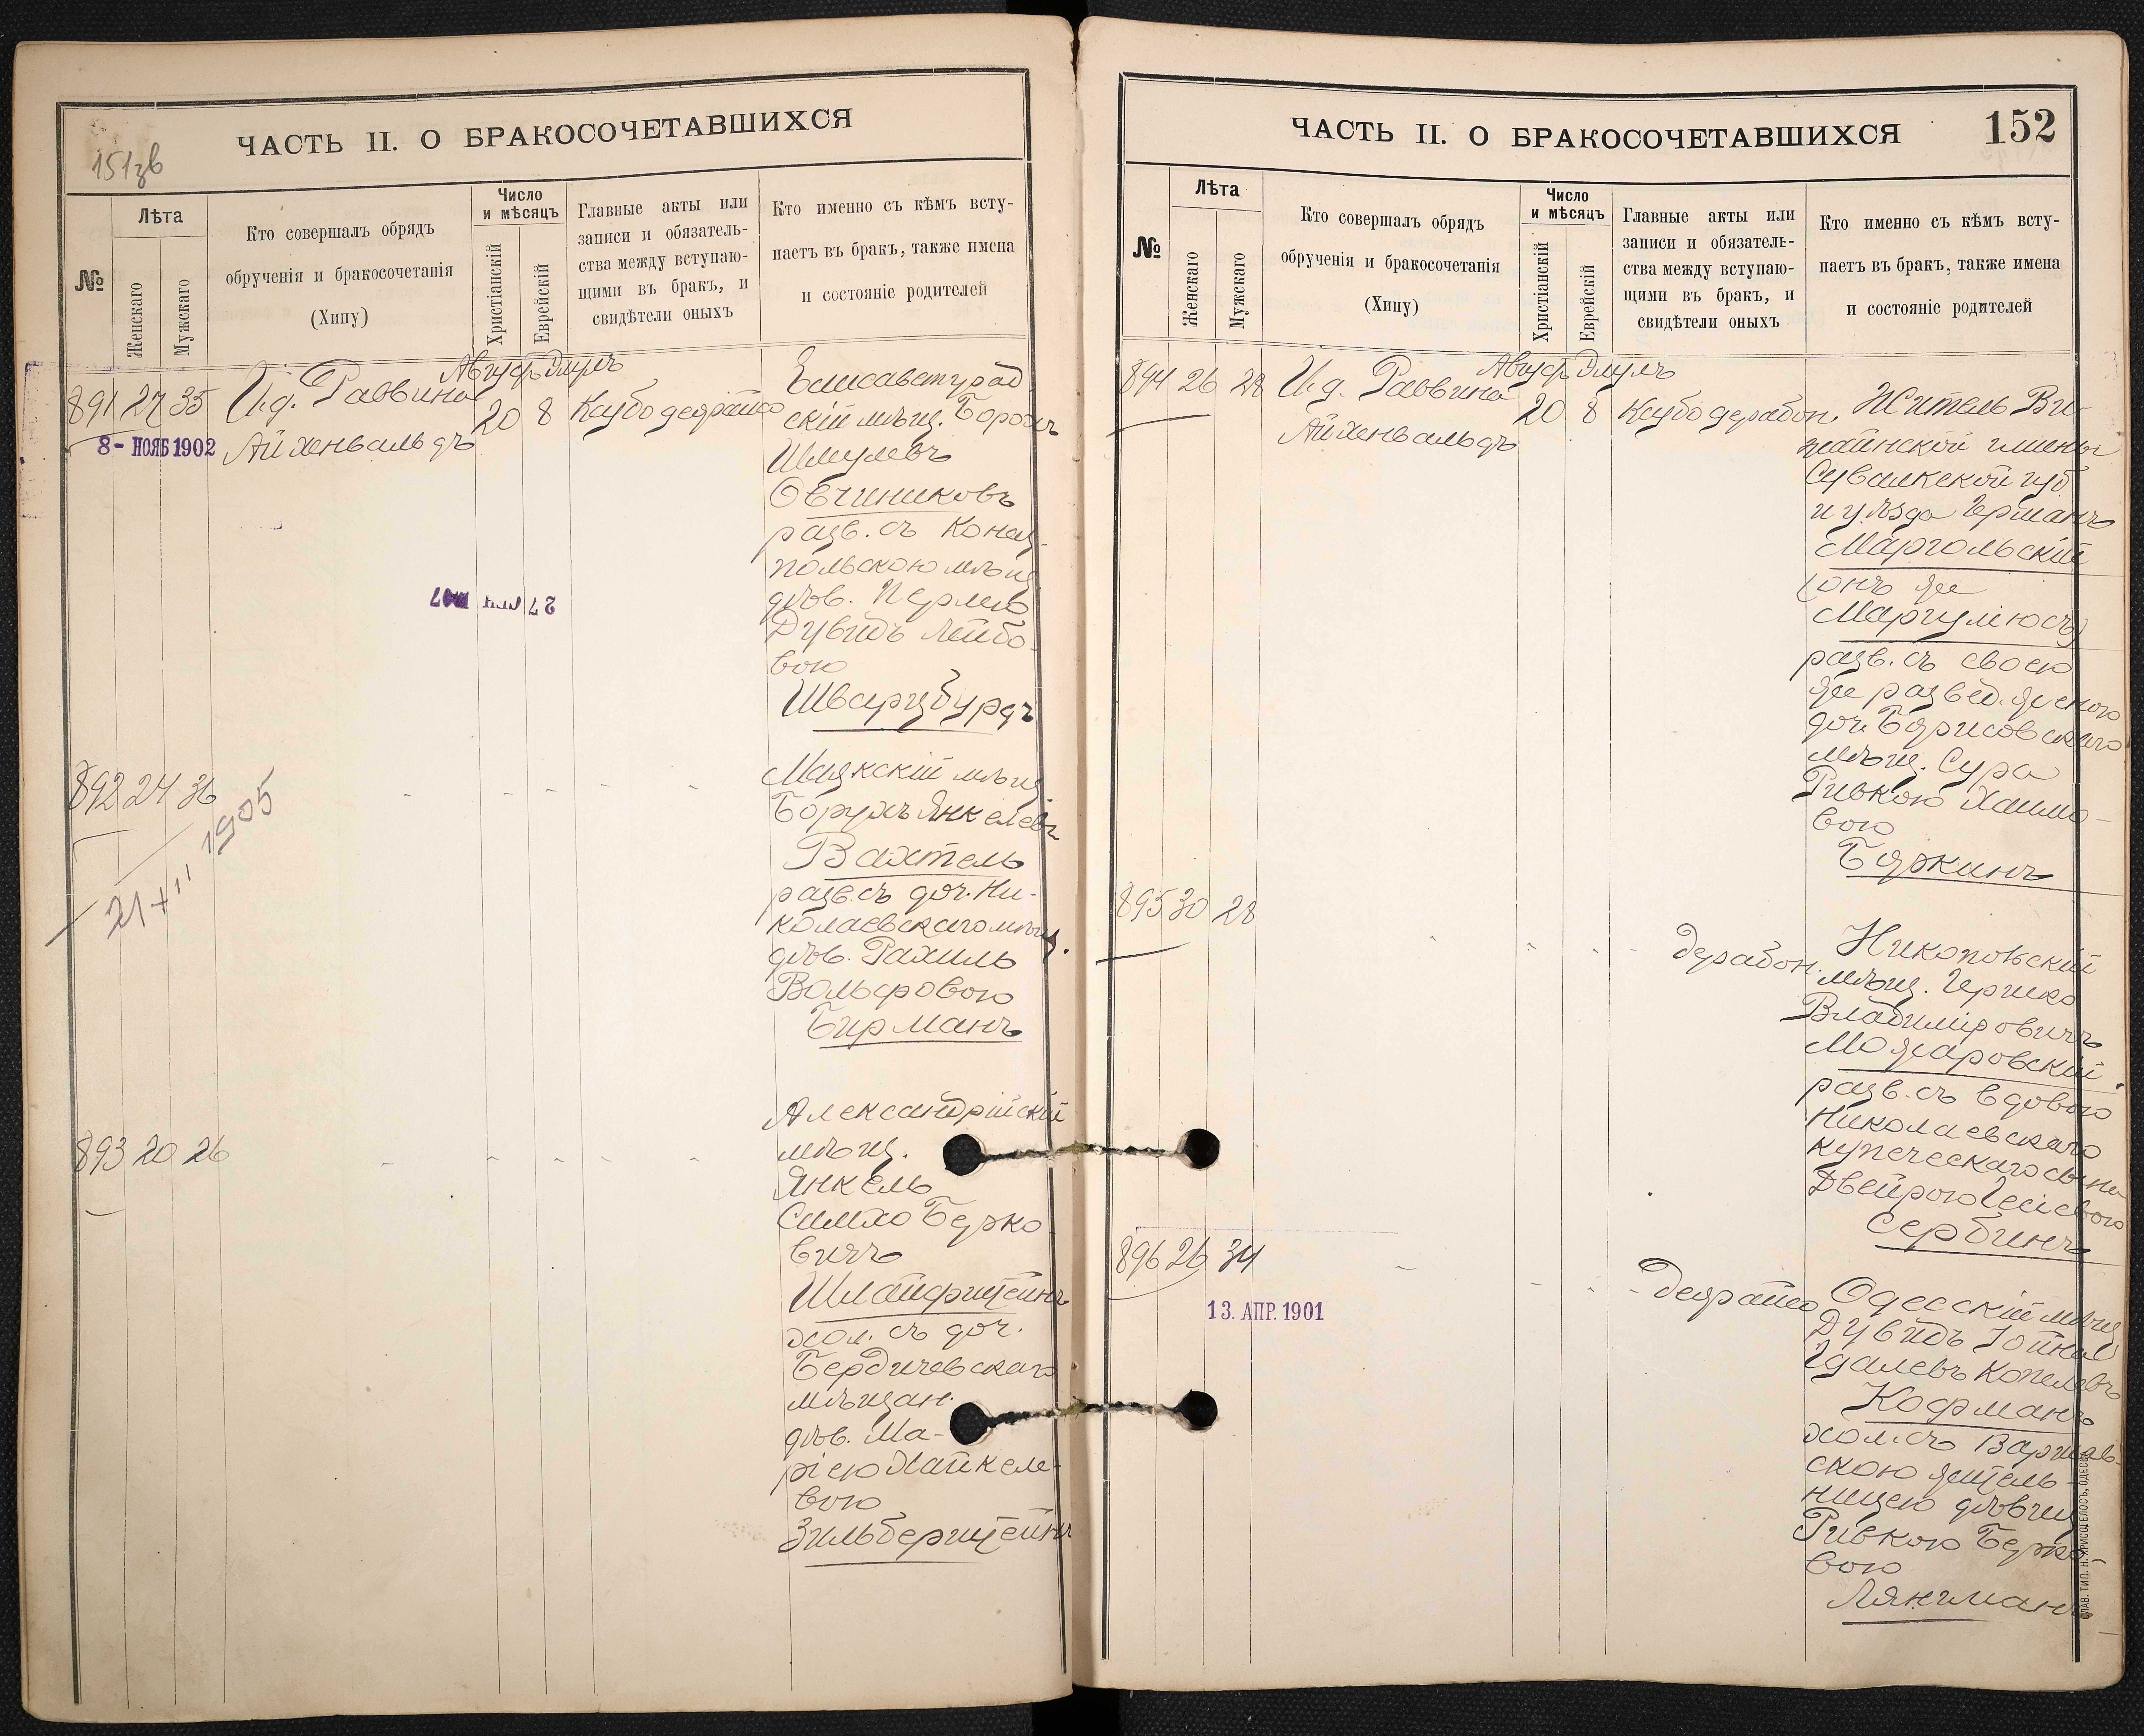 ЧАСТЬ II. О БРАКОСОЧЕТАВШИХСЯ
151зв
№
Лѣта
Женскаго
Мужскаго
Кто совершалъ обрядъ
обрученія и бракосочетанія
(Хипу)
Число
и мѣсяцъ
Христіанскій
Еврейскій
Главные акты или
записи и обязатель-
ства между вступаю-
щими въ бракъ, и
свидѣтели оныхъ
Кто именно съ кѣмъ всту-
паетъ въ бракъ, также имена
и состояніе родителей
891 27 35 И.д. Раввина
Айхенвальдъ
Август Элулъ
20 8
8- НОЯБ 1902
Елисаветград
скій мѣщ.
Шмулевъ
Овчиниковъ
разв. съ
польскою мѣщ
дѣв. Перлею
Дувидъ Лейбо
вою
Шварцбурдъ
892 24 36
1905
Маякскій мѣщ.
Борухъ Янкелевъ
Вахтель
разв. съ доч. Ни-
колаевскаго мѣщ.
дѣв. Рахиль
Вольфовою
Бирманъ
893 20 26
Александрійскій
мѣщ.
Янкель
Симхо Берко
вичъ
Шлайфштейнъ
хол. съ доч.
Бердичевскаго
мѣщан.
дѣв. Ма-
ріею Хайкеле-
вою
Зильберштейнъ
ЧАСТЬ II. О БРАКОСОЧЕТАВШИХСЯ
152
№
Лѣта
Женскаго
Мужскаго
Кто совершалъ обрядъ
обрученія и бракосочетанія
(Хипу)
Число
и мѣсяцъ
Христіанскій
Еврейскій
Главные акты или
записи и обязатель-
ства между вступаю-
щими въ бракъ, и
свидѣтели оныхъ
Кто именно съ кѣмъ всту-
паетъ въ бракъ, также имена
и состояніе родителей
894 26 28 И.д. Раввина
Айхенвальдъ
Август Элулъ
20 8 Каубо дерабон.
Житель Ви-
жайнской гмины
Сувалкской губ
и уѣзда Гершанъ
Маргольскій
(онъ же
Маргуліюсъ)
разв. съ своею
же развед. женою
доч. Борисовскаго
мѣщ. Сура
Ривкою Хаимо-
вою
Боркинъ
895 30 28
дерабон.
Никопольскій
мѣщ. Гершко
Владиміровичъ
Можаровскій
разв. съ вдовою
Николаевскаго
купеческаго сына
Двейрою
Сербинъ
896 26 34
13. АПР. 1901
Одесскій мѣщ
Дувидъ Іойна
Гдалевъ Копелевъ
Кофманъ
хол. съ Варшав-
скою житель-
ницею дѣвиц
Ривкою Берко-
вою
Лянгманъ
СЛАВ. ТИП. Н. ХРИСОГЕЛОСЪ, ОДЕССА